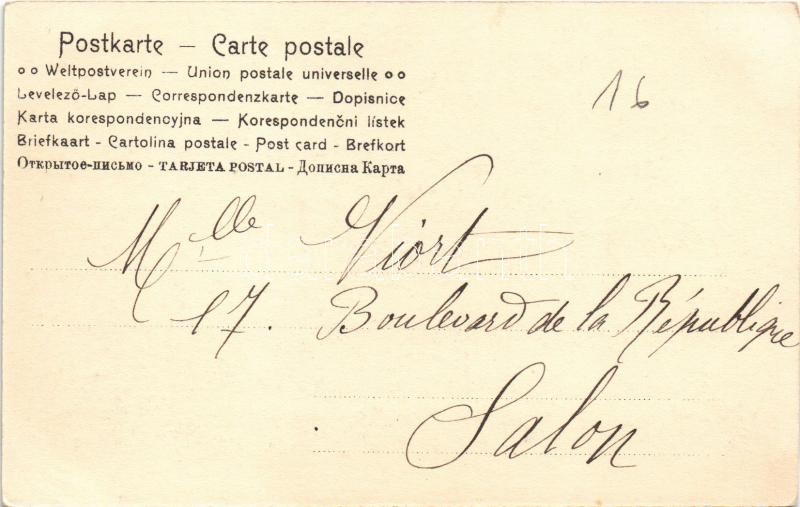 Postkarte – Carte postale
Weltpostverein — Union postale universelle
Levelező-Lap — Correspondenzkarte — Dopisnice
Karta korespondencyjna — Korespondenční lístek
Briefkaart - Cartolina postale - Post card - Brefkort
Открытое-письмо - TARJETA POSTAL - Дописна Карта
16
Mlle Viort
17. Boulevard de la République
Salon